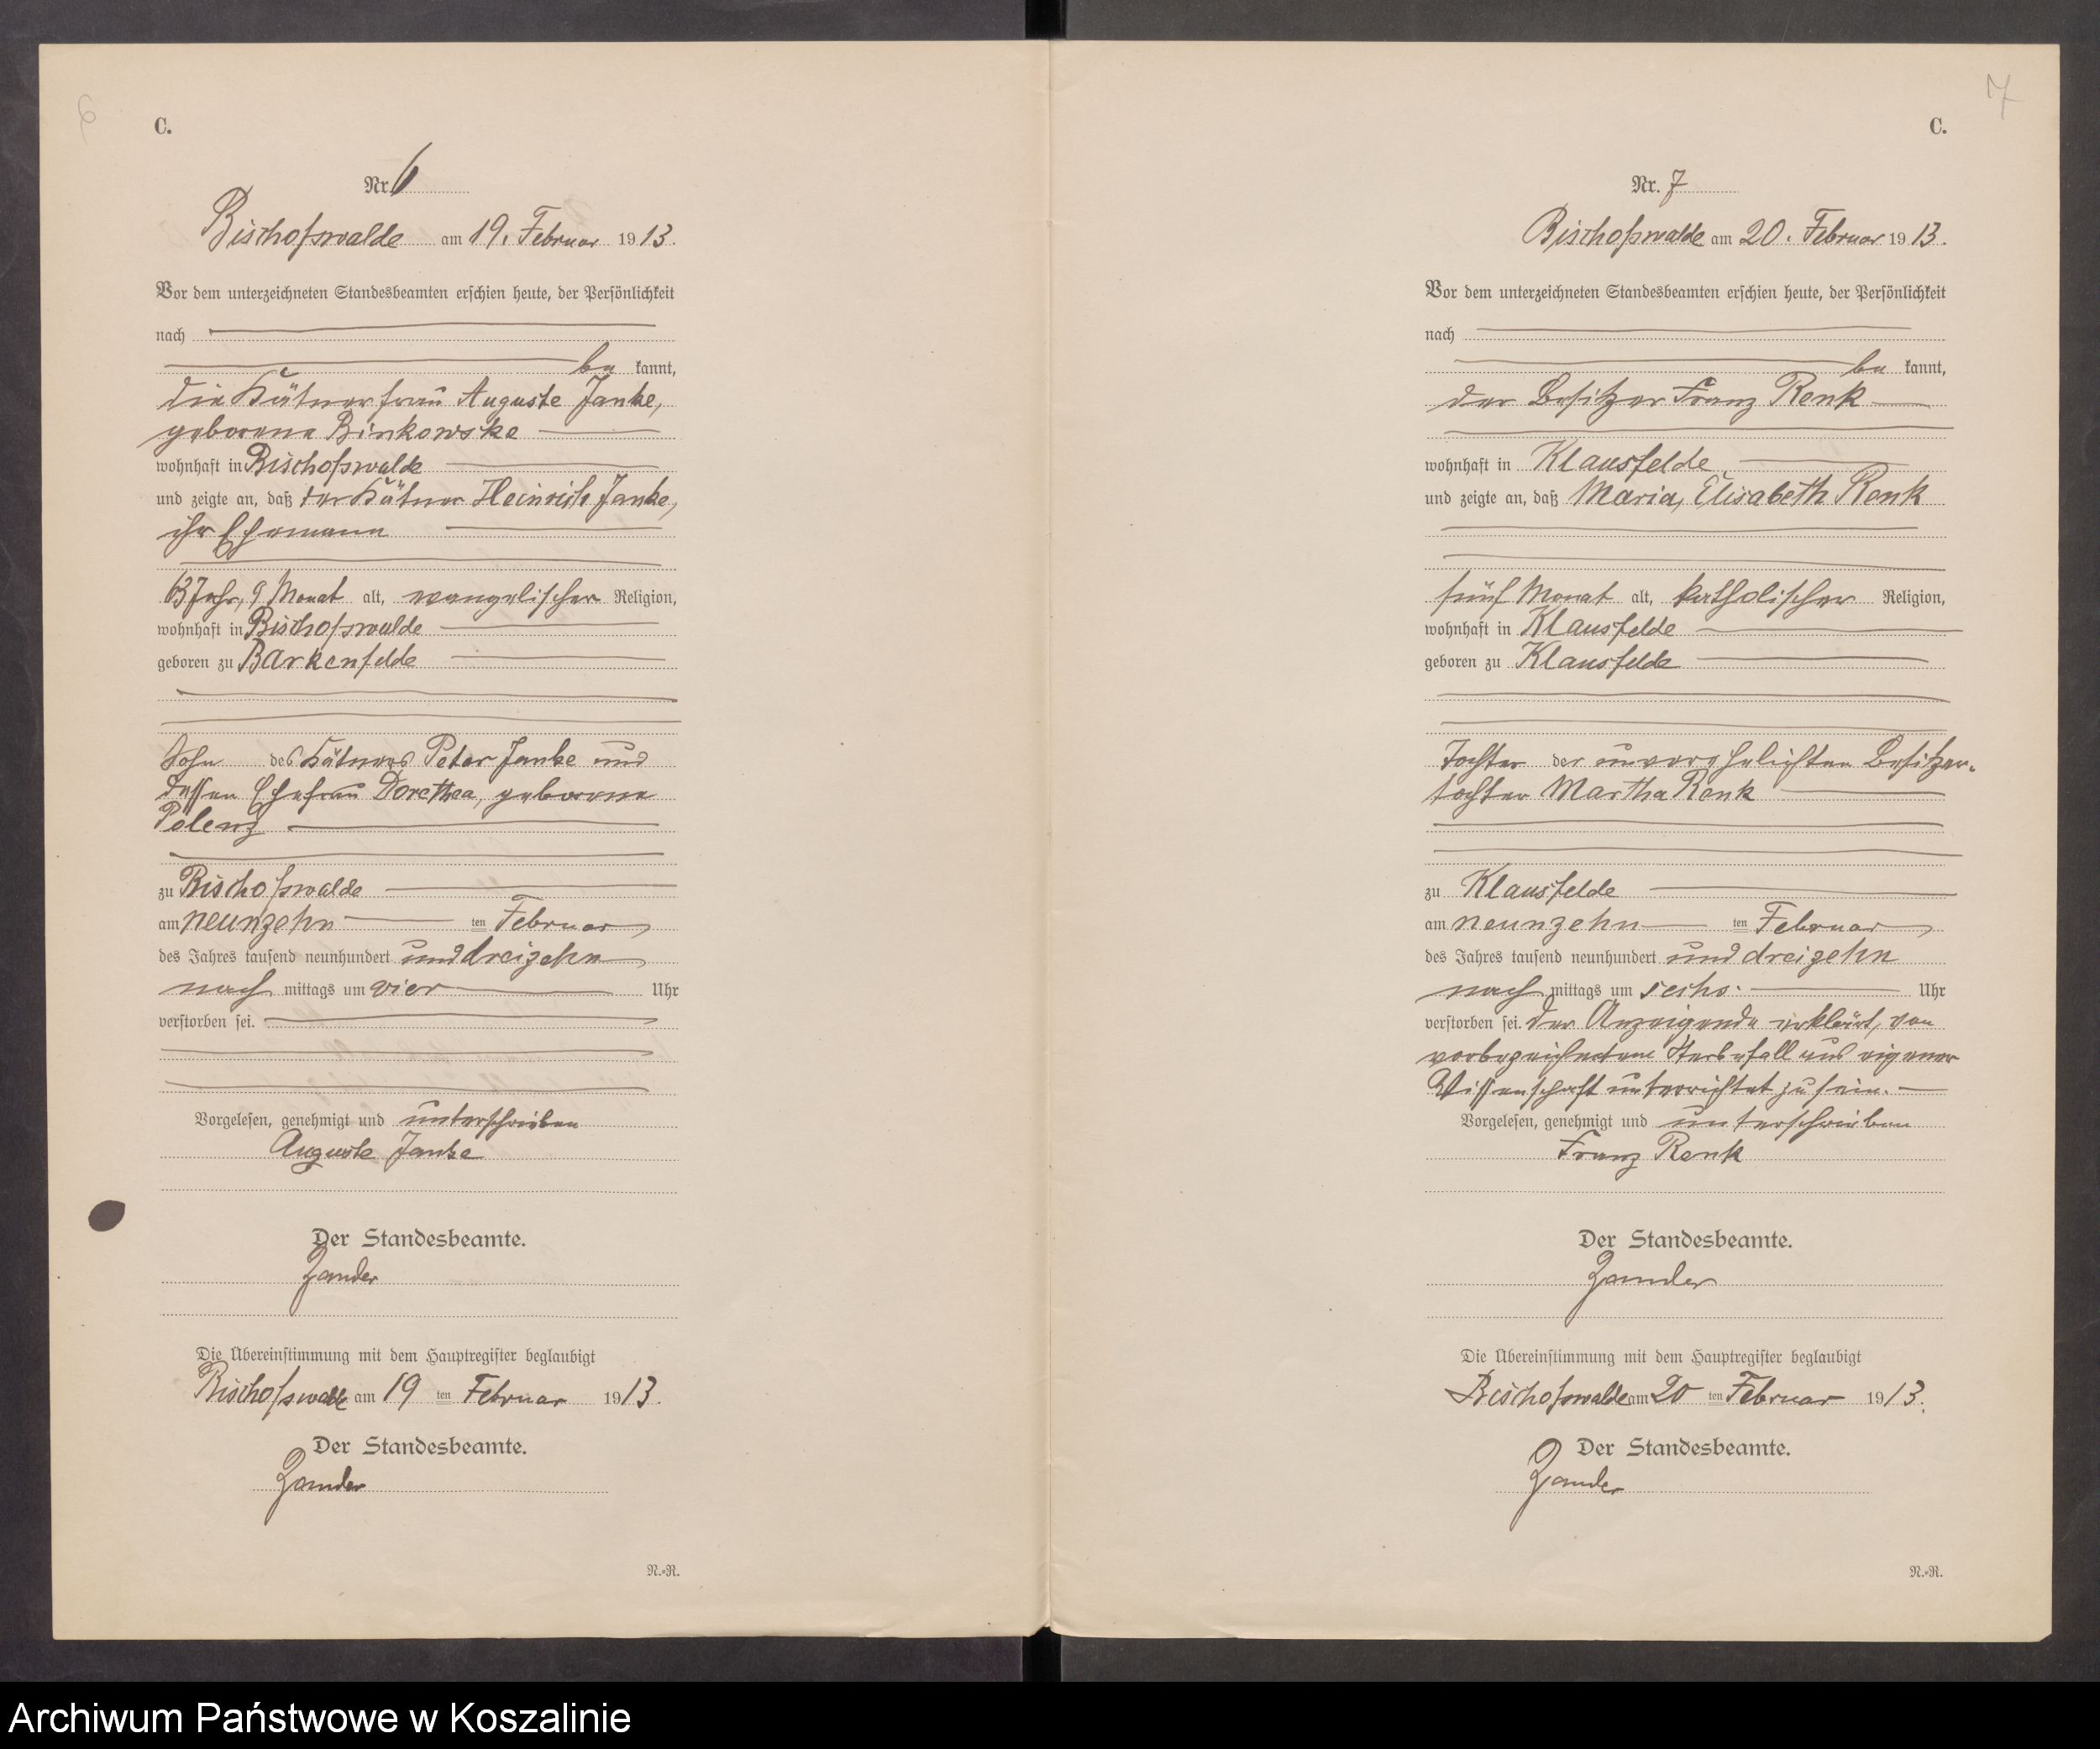 6
C.
Nr. 6
Bischofswalde am 19. Februar 1913.
Vor dem unterzeichneten Standesbeamten erschien heute, der Persönlichkeit
nach
be kannt,
die Kätnerfrau Auguste Janke,
geborene Binkowske
wohnhaft in Bischofswalde
und zeigte an, daß der Kätner Heinrich Janke,
ihr Ehemann
63 Jahr, 9 Monat alt, evangelischer Religion,
wohnhaft in Bischofswalde
geboren zu Barkenfelde
Sohn des Kätners Peter Janke und
dessen Ehefrau Dorethea, geborene
Polenz
zu Bischofswalde
am neunzehn ten Februar
des Jahres tausend neunhundert und dreizehn
nach mittags um vier Uhr
verstorben sei.
Vorgelesen, genehmigt und unterschrieben
Auguste Janke
Der Standesbeamte.
Zander
Die Übereinstimmung mit dem Hauptregister beglaubigt
Bischofswalde am 19 ten Februar 1913.
Der Standesbeamte.
Zander
N.-R.
7
C.
Nr. 7
Bischofswalde am 20. Februar 1913.
Vor dem unterzeichneten Standesbeamten erschien heute, der Persönlichkeit
nach
be kannt,
der Besitzer Franz Renk
wohnhaft in Klausfelde
und zeigte an, daß Maria, Elisabeth Renk
fünf Monat alt, katholischer Religion,
wohnhaft in Klausfelde
geboren zu Klausfelde
Tochter der unverehelichten Besitzer-
tochter Martha Renk
zu Klausfelde
am neunzehn ten Februar
des Jahres tausend neunhundert und dreizehn
nach mittags um sechs Uhr
verstorben sei. Der Anzeigende erklärt, von
vorbezeichnetem Sterbefall aus eigener
Wissenschaft unterrichtet zu sein.
Vorgelesen, genehmigt und unterschrieben
Franz Renk
Der Standesbeamte.
Zander
Die Übereinstimmung mit dem Hauptregister beglaubigt
Bischofswalde am 20 ten Februar 1913.
Der Standesbeamte.
Zander
N.-R.
Archiwum Państwowe w Koszalinie